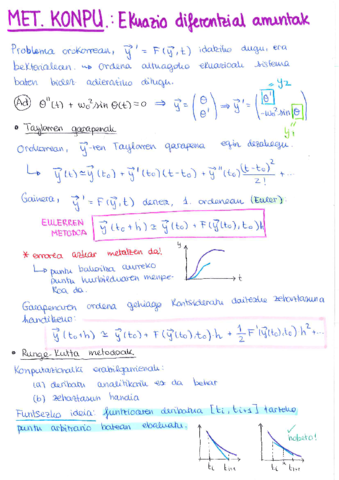 MET. KONPU.: Ekuazio diferentzial arruntak
Problema orokorrean, y⃗' = F(y⃗,t) idatziko dugu, era
bektorialean. → Ordena altuagoko ekuazioak sistema
baten bidez adieratiko ditugu.
y2
Ad θ''(t) + ω0² sin θ(t) = 0 ⇒ y⃗ = (θ θ') ⇒ y⃗' = (θ' -ω0² sin θ)
y1
• Taylorren garapenak
Orokorrean, y⃗-ren Taylorren garapena egin dezakegu.
↳ y⃗(t) ≃ y⃗(t0) + y⃗'(t0)(t-t0) + y⃗''(t0) (t-t0)²/2! + ...
Gainera, y⃗' = F(y⃗,t) denez, 1. ordenean (Euler):
EULERREN METODOA y⃗(t0+h) ≃ y⃗(t0) + F(y⃗(t0),t0)h
* errorea azkar metatzen da!
↳ puntu bakoitza aurreko
puntu hurbilduaren menpe-
koa da.
y
t
Garapenaren ordena gehiago kontsideratu daitezke zehaztasuna
handitzeko:
y⃗(t0+h) ≃ y⃗(t0) + F(y⃗(t0),t0)h + 1/2 F'(y⃗(t0),t0)h² + ...
• Runge-Kutta metodoak
Konputazionalki erabilgarrienak:
(a) deribatu analitikorik ez da behar
(b) zehaztasun handia
Funtsezko ideia: funtzioaren deribatua [ti, ti+1] tarteko
puntu arbitrario batean ebaluatu.
hobeto!
ti ti+1
ti ti+1